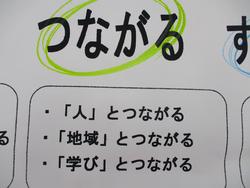 つながる
・「人」とつながる
・「地域」とつながる
・「学び」とつながる
る